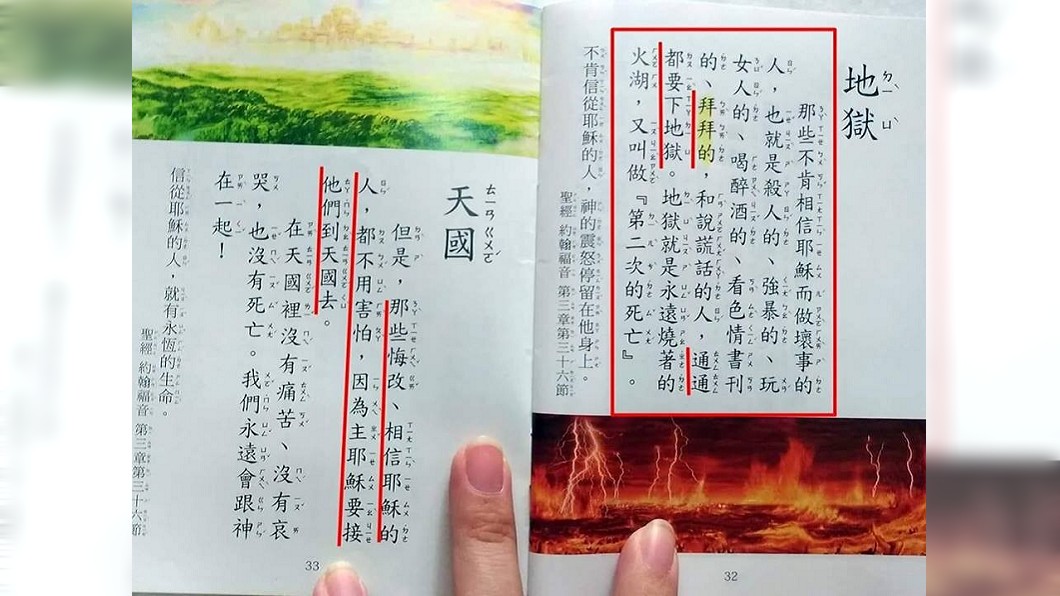 地獄
那些不肯相信耶穌而做壞事的
人，也就是殺人的、強暴的、玩
女人的、喝醉酒的、看色情書刊
的、拜拜的，和說謊話的人，通通
都要下地獄。地獄就是永遠燒著的
火湖，又叫做『第二次的死亡』。
不肯信從耶穌的人，神的震怒停留在他身上。
聖經 約翰福音 第三章第三十六節
32
天國
但是，那些悔改、相信耶穌的
人，都不用害怕，因為主耶穌要接
他們到天國去。
在天國裡沒有痛苦、沒有哀
哭，也沒有死亡。我們永遠會跟神
在一起！
信從耶穌的人，就有永恆的生命。
聖經 約翰福音 第三章第三十六節
33